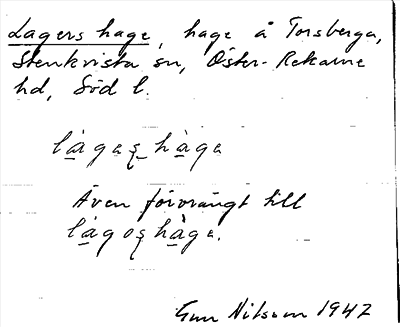 Lagers hage, hage å Torsberga,
Stenkvista sn, Öster-Rekarne
hd, Söd l.
lágaꞩ hàga
Även förvrängt till
lágoꞩ hàga.
Gun Nilsson 1942